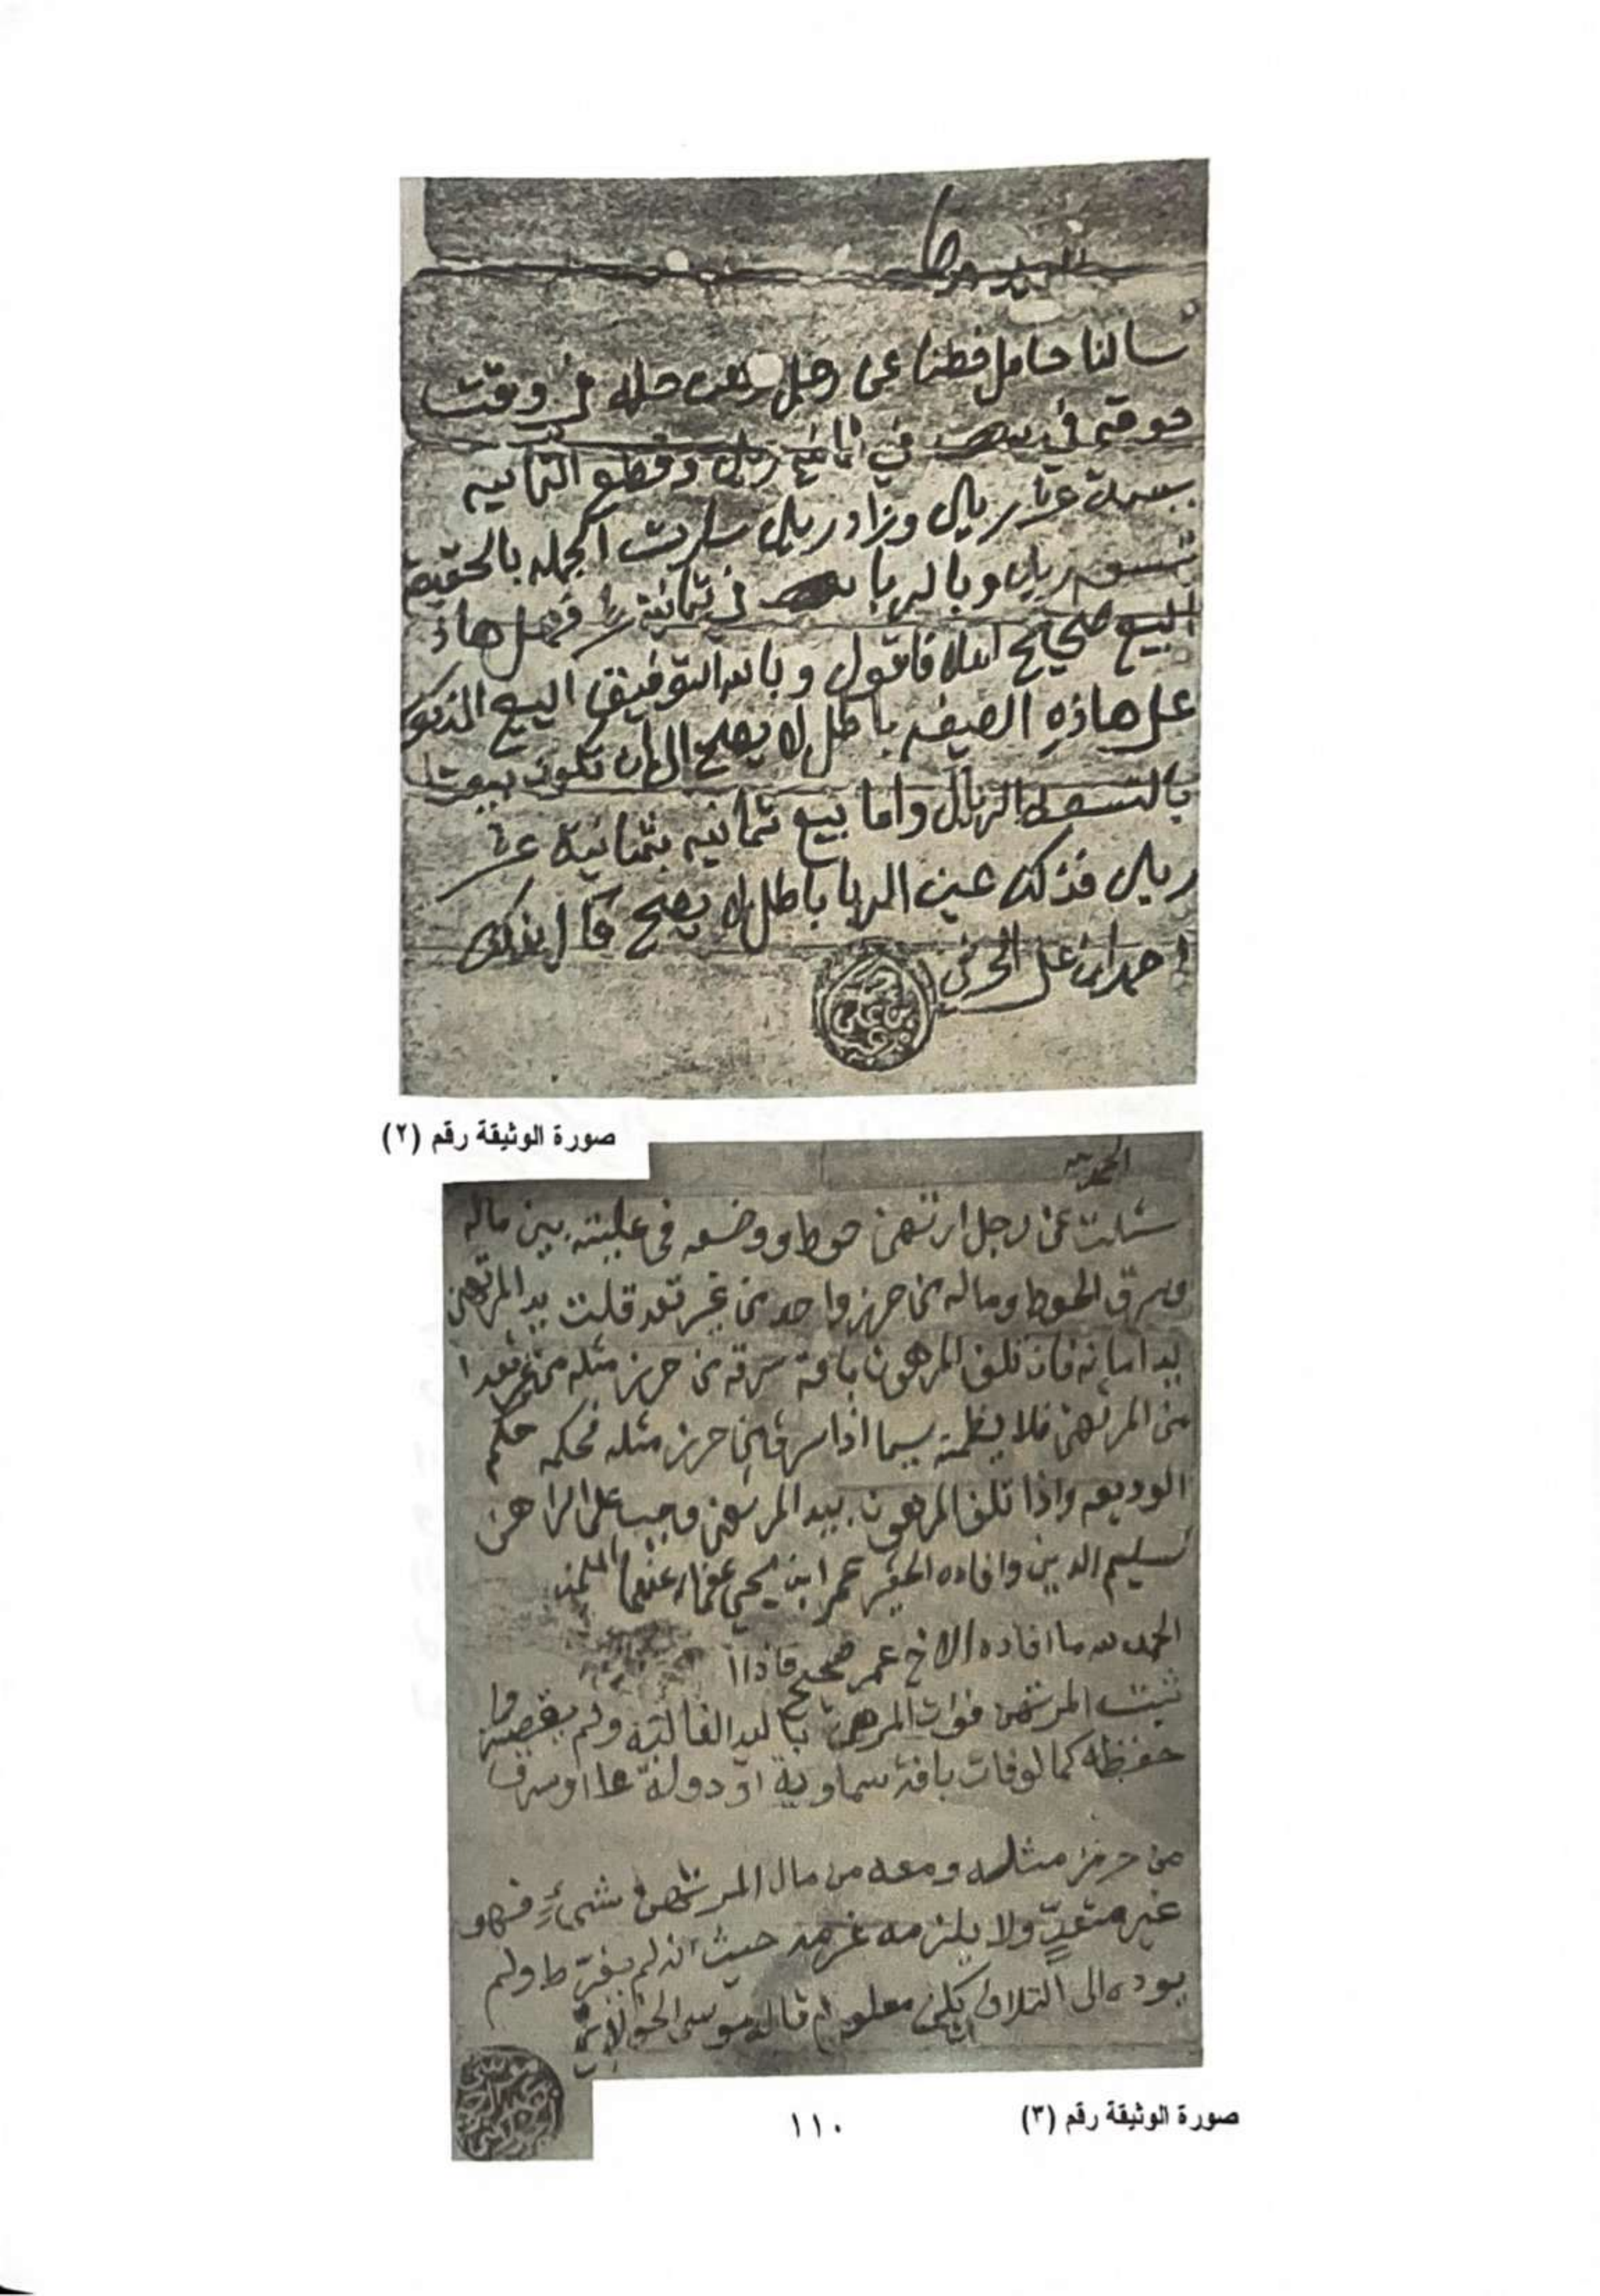 سالنا حامل خطنا عن رجل رهن حله في وقت
في ريال وقطع الثمانيه
ريال وزاد ريال سارت الجمله بالحقيقه
ريال وبالربا في ثمانية فهل هاذ
البيع صحيح ام لا فاقول وبالله التوفيق البيع المذكور
على هاذه الصيفه باطل لا يصح الى ان تكون بيعت
الريال واما بيع ثمانيه بثمانية عشر
ريال فذلك عين الربا باطل لا يصح قال بذلك
احمد ابن علي
صورة الوثيقة رقم (٢)
الحمد لله
سئلت عن رجل ارتهن حوط ووضعه في علبته بين ماله
وسرق الحوط وماله من حرز واحد من غير تعد قلت يد المرتهن
يد امانه فان تلف المرهون بافة سرقه من حرز مثله من غير تعدا
من المرتهن فلا يضمنه سيما اذا سرق من حرز مثله فحكمه حكم
الوديعه واذا تلف المرهون بيد المرتهن وجب على الراهن
تسليم الدين وافاده الحقير عمر ابن يحي عفا الله عنهما
الحمد لله ما افاده الاخ عمر صحيح فاذا
ثبت المرتهن فوات المرهن باليد الغالبة ولم يقصر
حفظه كما لو فات بافة سماوية او دولة او سرق
من حرز مثله ومعه من مال المرتهن شيء فهو
غير متعدٍّ ولا يلزمه غرمه حيث انه لم يفرّط ولم
يوده الى التلاف معلوم قاله موسى
صورة الوثيقة رقم (٣)
١١٠